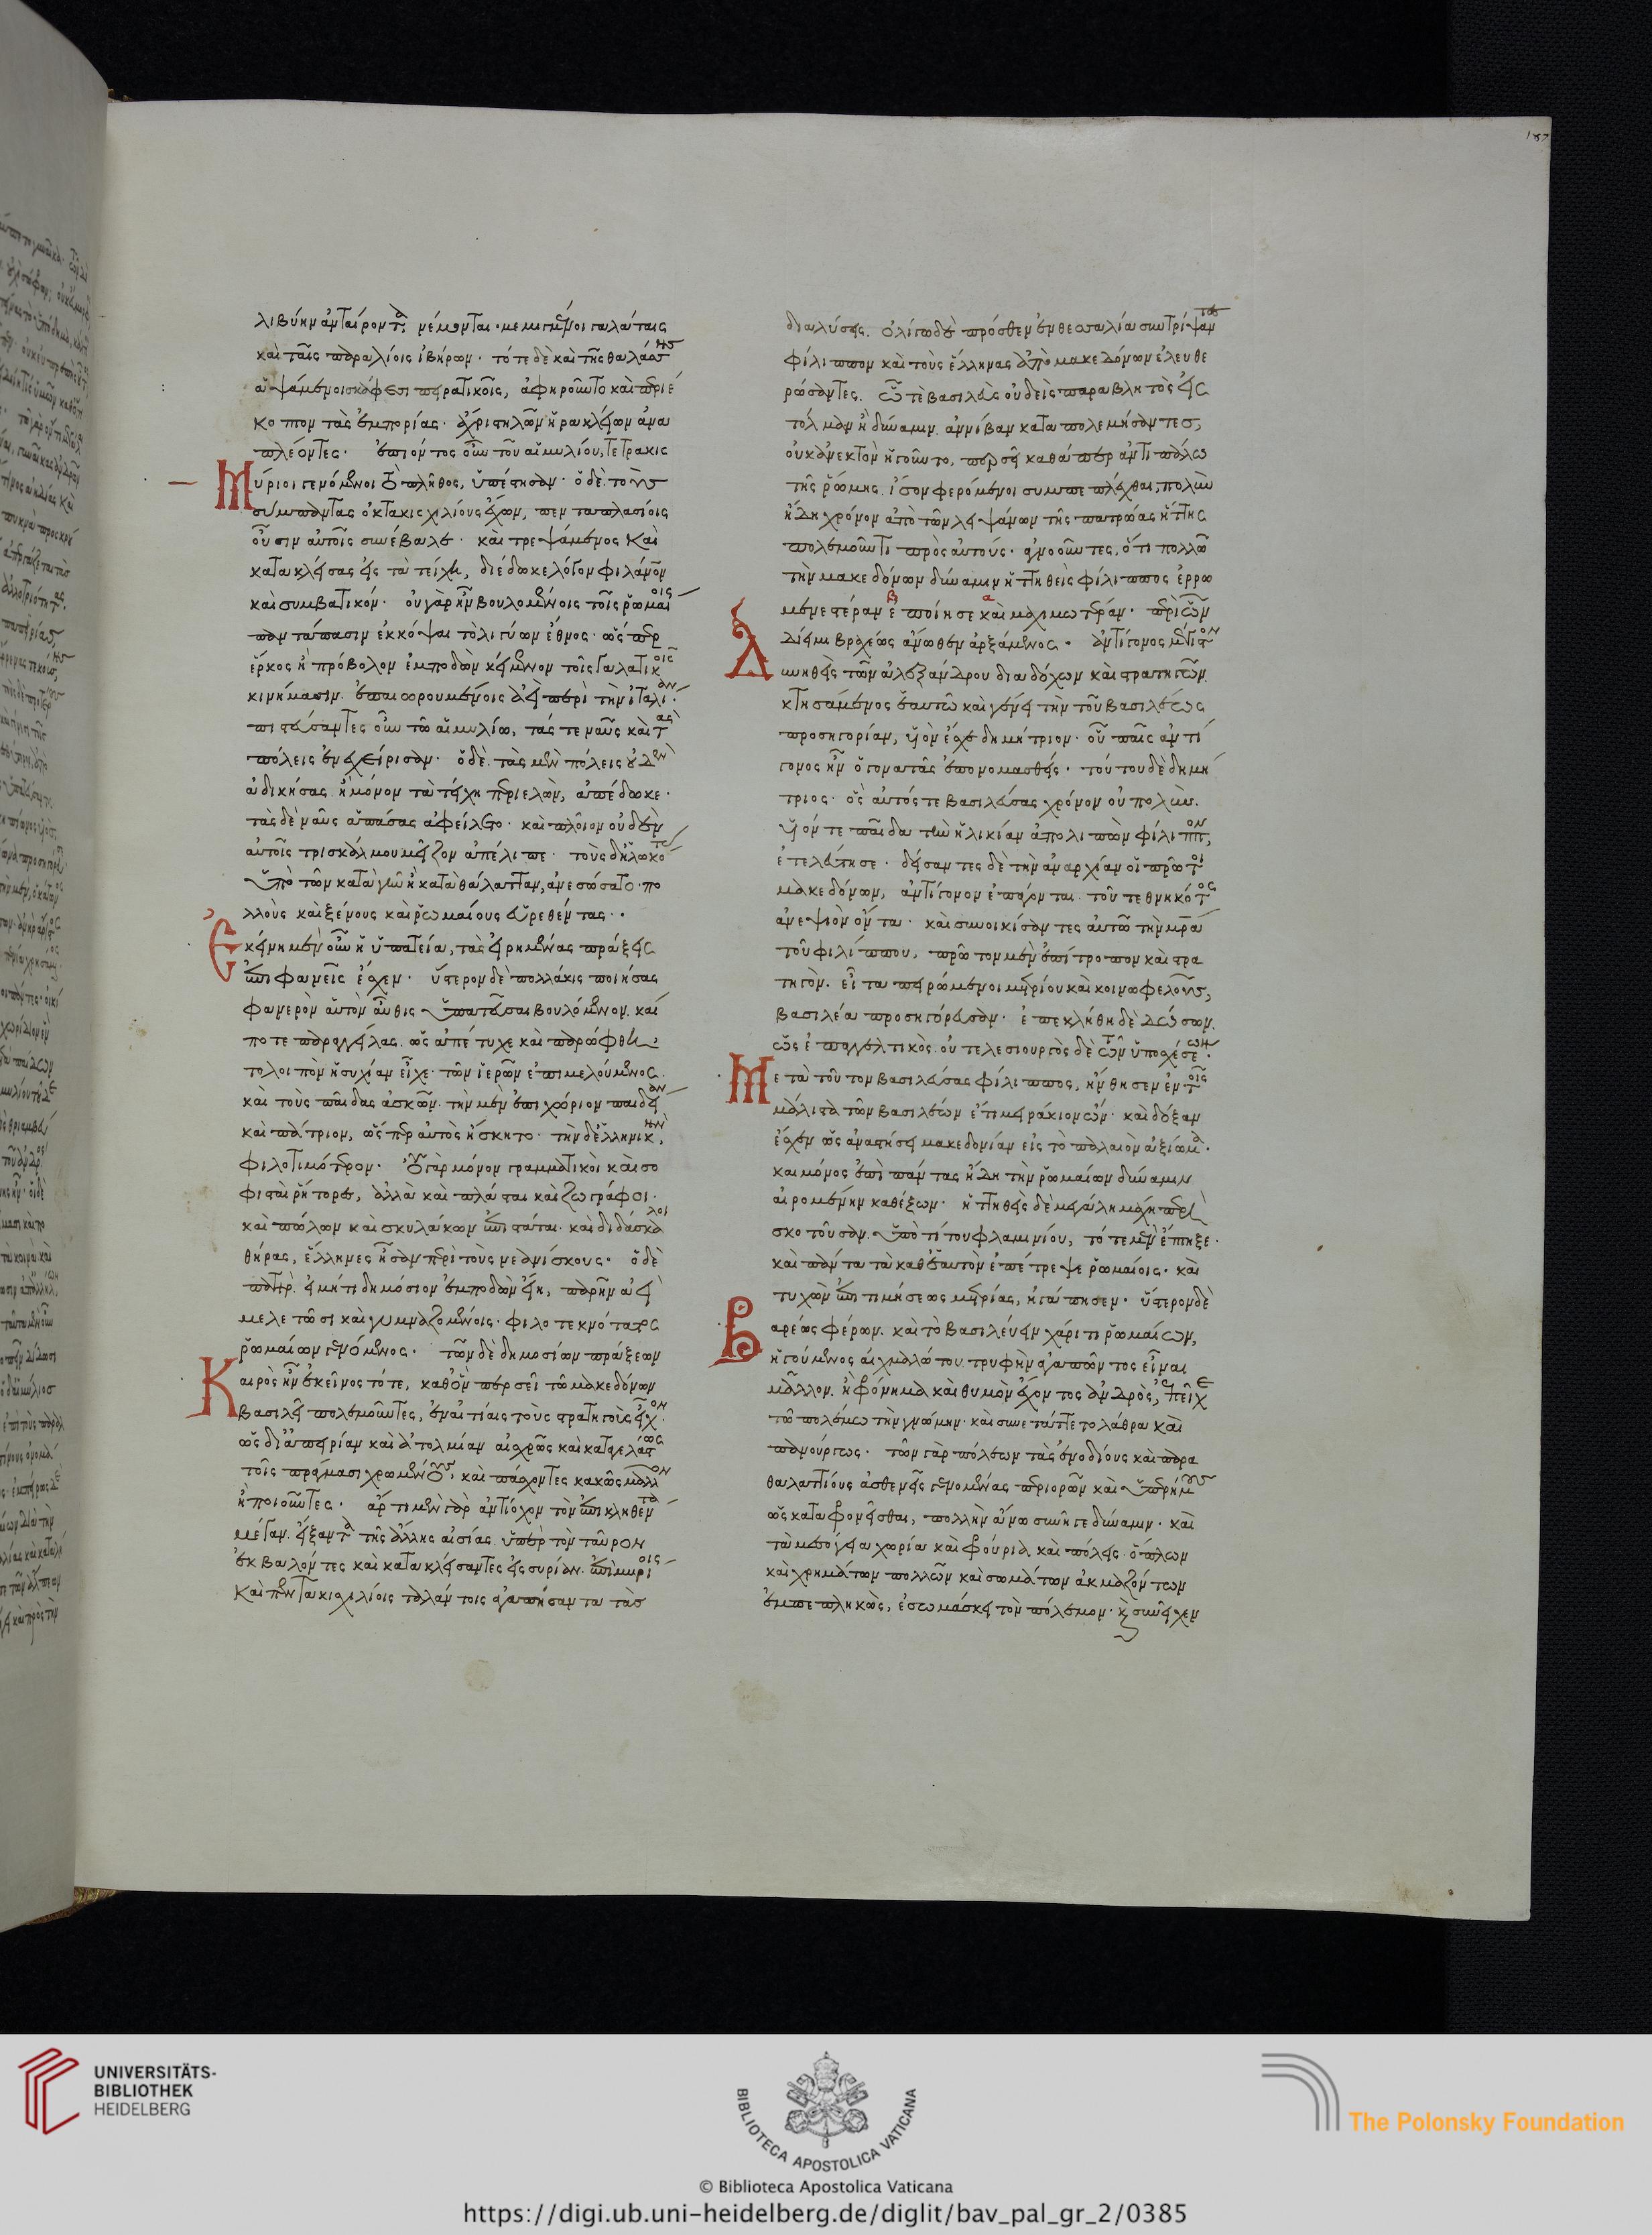 λιβύην ἀνταίροντα, νέμονται· μεμιγμένοι γαλάταις
καὶ τοῖς παραλίοις ἰβήρων· τότε δὲ καὶ τῆς θαλάσσης
ἁψάμενοι σκάφεσι πειρατικοῖς, ἀφηροῦντο καὶ περιέ
κοπτον τὰς ἐμπορίας· ἄχρι στηλῶν ἡρακλείων ἀνα
πλέοντες· ἐπιόντος οὖν τοῦ αἰμυλίου, τετρακις
μύριοι γενόμενοι τὸ πλῆθος, ὑπέστησαν· ὁ δὲ τοὺς
σύμπαντας ὀκτακισχιλίους ἔχων, πενταπλασίοις
οὖσιν αὐτοῖς συνέβαλε· καὶ τρεψάμενος καὶ
κατακλείσας εἰς τὰ τείχη, διέδωκε λόγον φιλάνθρωπον
καὶ συμβατικόν· οὐ γὰρ ἦν βουλομένοις τοῖς ῥωμαίοις
παντάπασιν ἐκκόψαι τὸ λιγύων ἔθνος· ὥσπερ
ἕρκος ἢ πρόβολον ἐμποδὼν κείμενον τοῖς γαλατικοῖς
κινήμασιν. ἐπαιωρουμένοις ἀεὶ περὶ τὴν ἰταλίαν·
πιστεύσαντες οὖν τῶ αἰμυλίω, τάς τε ναῦς καὶ τὰς
πόλεις ἐνεχείρισαν· ὁ δὲ τὰς μὲν πόλεις οὐδὲν
ἀδικήσας ἢ μόνον τὰ τείχη περιελὼν, ἀπέδωκε·
τὰς δὲ ναῦς ἁπάσας ἀφείλετο· καὶ πλοῖον οὐδὲν
αὐτοῖς τρισκάλμου μεῖζον ἀπέλιπε· τοὺς δ' ἡλωκότας
ὑπὸ τῶν κατὰ γῆν ἢ κατὰ θάλατταν, ἀνεσώσατο· πο
λλοὺς καὶ ξένους καὶ ῥωμαίους εὑρεθέντας·
ἐκείνη μὲν οὖν ἡ ὑπατεία, τὰς εἰρημένας πράξεις
ἐπιφανεῖς ἔσχεν· ὕστερον δὲ πολλάκις ποιήσας
φανερὸν αὑτὸν αὖθις ὑπατεῦσαι βουλόμενον. καί
ποτε παραγγείλας. ὡς ἀπέτυχε καὶ παρώφθη
τολοιπὸν ἡσυχίαν εἶχε· τῶν ἱερῶν ἐπιμελούμενος.
καὶ τοὺς παῖδας ἀσκῶν. τὴν μὲν ἐπιχώριον παιδείαν
καὶ πάτριον, ὥσπερ αὐτὸς ἤσκητο· τὴν δ' ἑλληνικὴν,
φιλοτιμότερον· οὐ γὰρ μόνον γραμματικοὶ καὶ σο
φισταὶ ῥήτορες, ἀλλὰ καὶ πλάσται καὶ ζωγράφοι.
καὶ πώλων καὶ σκυλάκων ἐπιστάται· καὶ διδάσκαλοι
θήρας, ἕλληνες ἦσαν περὶ τοὺς νεανίσκους· ὁ δὲ
πατὴρ. εἰ μή τι δημόσιον ἐμποδὼν εἴη, παρῆν ἀεὶ
μελετῶσι καὶ γυμναζομένοις· φιλοτεκνότατος
ῥωμαίων γενόμενος· τῶν δὲ δημοσίων πράξεων
καιρὸς ἦν ἐκεῖνος τότε, καθ' ὃν περσεῖ τῶ μακεδόνων
βασιλεῖ πολεμοῦντες, ἐν αἰτίαις τοὺς στρατηγοὺς εἶχον.
ὡς δι' ἀπειρίαν καὶ ἀτολμίαν αἰσχρῶς καὶ καταγελάστως
τοῖς πράγμασι χρωμένους, καὶ πάσχοντες κακῶς μᾶλλον
ἢ ποιοῦντες· ἄρτι μὲν γὰρ ἀντίοχον τὸν ἐπικληθέντα
μέγαν. εἴξαντα τῆς ἄλλης ἀσίας. ὑπὲρ τὸν ταῦρον
ἐκβαλόντες καὶ κατακλείσαντες εἰς συρίαν. ἐπὶ μυρίοις
καὶ πεντακισχιλίοις ταλάντοις ἀγαπήσαντα τὰς
διαλύσεις. ὀλίγω δὲ πρόσθεν ἐν θεσσαλία συντρίψαντες
φίλιππον καὶ τοὺς ἕλληνας ἀπὸ μακεδόνων ἐλευθε
ρώσαντες. ὧ τε βασιλεὺς οὐδεὶς παραβλητὸς εἰς
τόλμαν ἢ δύναμιν. ἀννίβαν καταπολεμήσαντες,
οὐκ ἀνεκτὸν ἡγοῦντο, περσεῖ καθάπερ ἀντιπάλω
τῆς ῥώμης. ἴσον φερόμενοι συμπεπλέχθαι, πολὺν
ἤδη χρόνον ἀπὸ τῶν λειψάνων τῆς πατρώας ἥττης
πολεμοῦντι πρὸς αὐτούς· ἀγνοοῦντες, ὅτι πολλῶ
τὴν μακεδόνων δύναμιν ἡττηθεὶς φίλιππος ἐρρω
μενεστέραν ἐποίησε καὶ μαχιμωτέραν· περὶ ὧν
δίειμι βραχέως ἄνωθεν ἀρξάμενος· ἀντίγονος μέγιστον
δυνηθεὶς τῶν ἀλεξάνδρου διαδόχων καὶ στρατηγῶν.
κτησάμενος ἑαυτῶ καὶ γένει τὴν τοῦ βασιλέως
προσηγορίαν, υἱὸν ἔσχε δημήτριον· οὗ παῖς ἀντί
γονος ἦν ὁ γονατᾶς ἐπονομασθείς· τούτου δὲ δημή
τριος· ὃς αὐτός τε βασιλεύσας χρόνον οὐ πολὺν.
υἱόν τε παῖδα τὴν ἡλικίαν ἀπολιπὼν φίλιππον,
ἐτελεύτησε· δείσαντες δὲ τὴν ἀναρχίαν οἱ πρῶτοι
μακεδόνων, ἀντίγονον ἐπάγονται. τοῦ τεθνηκότος
ἀνεψιὸν ὄντα· καὶ συνοικίσαντες αὐτῶ τὴν μητέρα
τοῦ φιλίππου, πρῶτον μὲν ἐπίτροπον καὶ στρα
τηγὸν. εἶτα πειρώμενοι μετρίου καὶ κοινωφελοῦς,
βασιλέα προσηγόρευσαν· ἐπεκλήθη δὲ δώσων.
ὡς ἐπαγγελτικὸς. οὐ τελεσιουργὸς δὲ τῶν ὑποσχέσεων·
μετὰ τοῦτον βασιλεύσας φίλιππος, ἤνθησεν ἐν τοῖς
μάλιστα τῶν βασιλέων ἔτι μειράκιον ὤν· καὶ δόξαν
ἔσχεν ὡς ἀναστήσει μακεδονίαν εἰς τὸ παλαιὸν ἀξίωμα·
και μόνος ἐπὶ πάντας ἤδη τὴν ῥωμαίων δύναμιν
αἰρομένην καθέξων· ἡττηθεὶς δὲ μεγάλη μάχη περὶ
σκοτοῦσαν. ὑπὸ τίτου φλαμινίου, τότε μὲν ἔπτηξε·
καὶ πάντα τὰ καθ' ἑαυτὸν ἐπέτρεψε ῥωμαίοις· καὶ
τυχὼν ἐπιτιμήσεως μετρίας, ἠγάπησεν· ὕστερον δὲ
βαρέως φέρων. καὶ τὸ βασιλεύειν χάριτι ῥωμαίων,
ἡγούμενος αἰχμαλώτου τρυφὴν ἀγαπῶντος εἶναι
μᾶλλον. ἢ φρόνημα καὶ θυμὸν ἔχοντος ἀνδρὸς, ἐπεῖχε
τῶ πολέμω τὴν γνώμην· καὶ συνετάττετο λάθρα καὶ
πανούργως· τῶν γὰρ πόλεων τὰς ἐνοδίους καὶ παρα
θαλαττίους ἀσθενεῖς γενομένας περιορῶν καὶ ὑπερήμους
ὡς καταφρονεῖσθαι, πολλὴν ἄνω συνῆγε δύναμιν· καὶ
τὰ μεσόγεια χωρία καὶ φρούρια καὶ πόλεις. ὅπλων
καὶ χρημάτων πολλῶν καὶ σωμάτων ἀκμαζόντων
ἐμπεπληκὼς, ἐσωμάσκει τὸν πόλεμον· καὶ συνεῖχεν
UNIVERSITÄTS-
BIBLIOTHEK
HEIDELBERG
BIBLIOTECA APOSTOLICA VATICANA
© Biblioteca Apostolica Vaticana
The Polonsky Foundation
https://digi.ub.uni-heidelberg.de/diglit/bav_pal_gr_2/0385